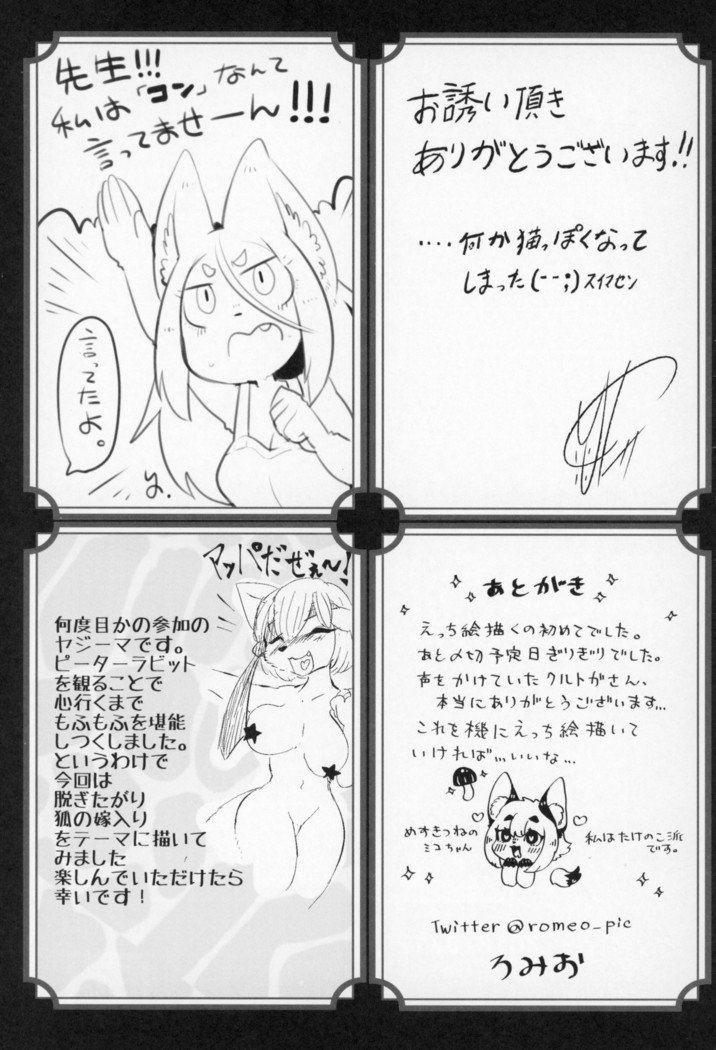 先生!!!
私は「コン」なんて
言ってませーん!!!
言ってたよ。
お誘い頂き
ありがとうございます!!
....何か猫っぽくなって
しまった(--;)スイマセン
マッパだぜぇ〜!
何度目かの参加の
ヤジーマです。
ピーターラビット
を観ることで
心行くまで
もふもふを堪能
しつくしました。
というわけで
今回は
脱ぎたがり
狐の嫁入り
をテーマに描いて
みました
楽しんでいただけたら
幸いです！
あとがき
えっち絵描くの初めてでした。
あと〆切予定日ぎりぎりでした。
声をかけていたクルトがさん、
本当にありがとうございます...
これを機にえっち絵描いて
いければ...いいな...
めすきつねの
ミコちゃん
私はたけのこ派
です。
Twitter@romeo_pic
ろみお